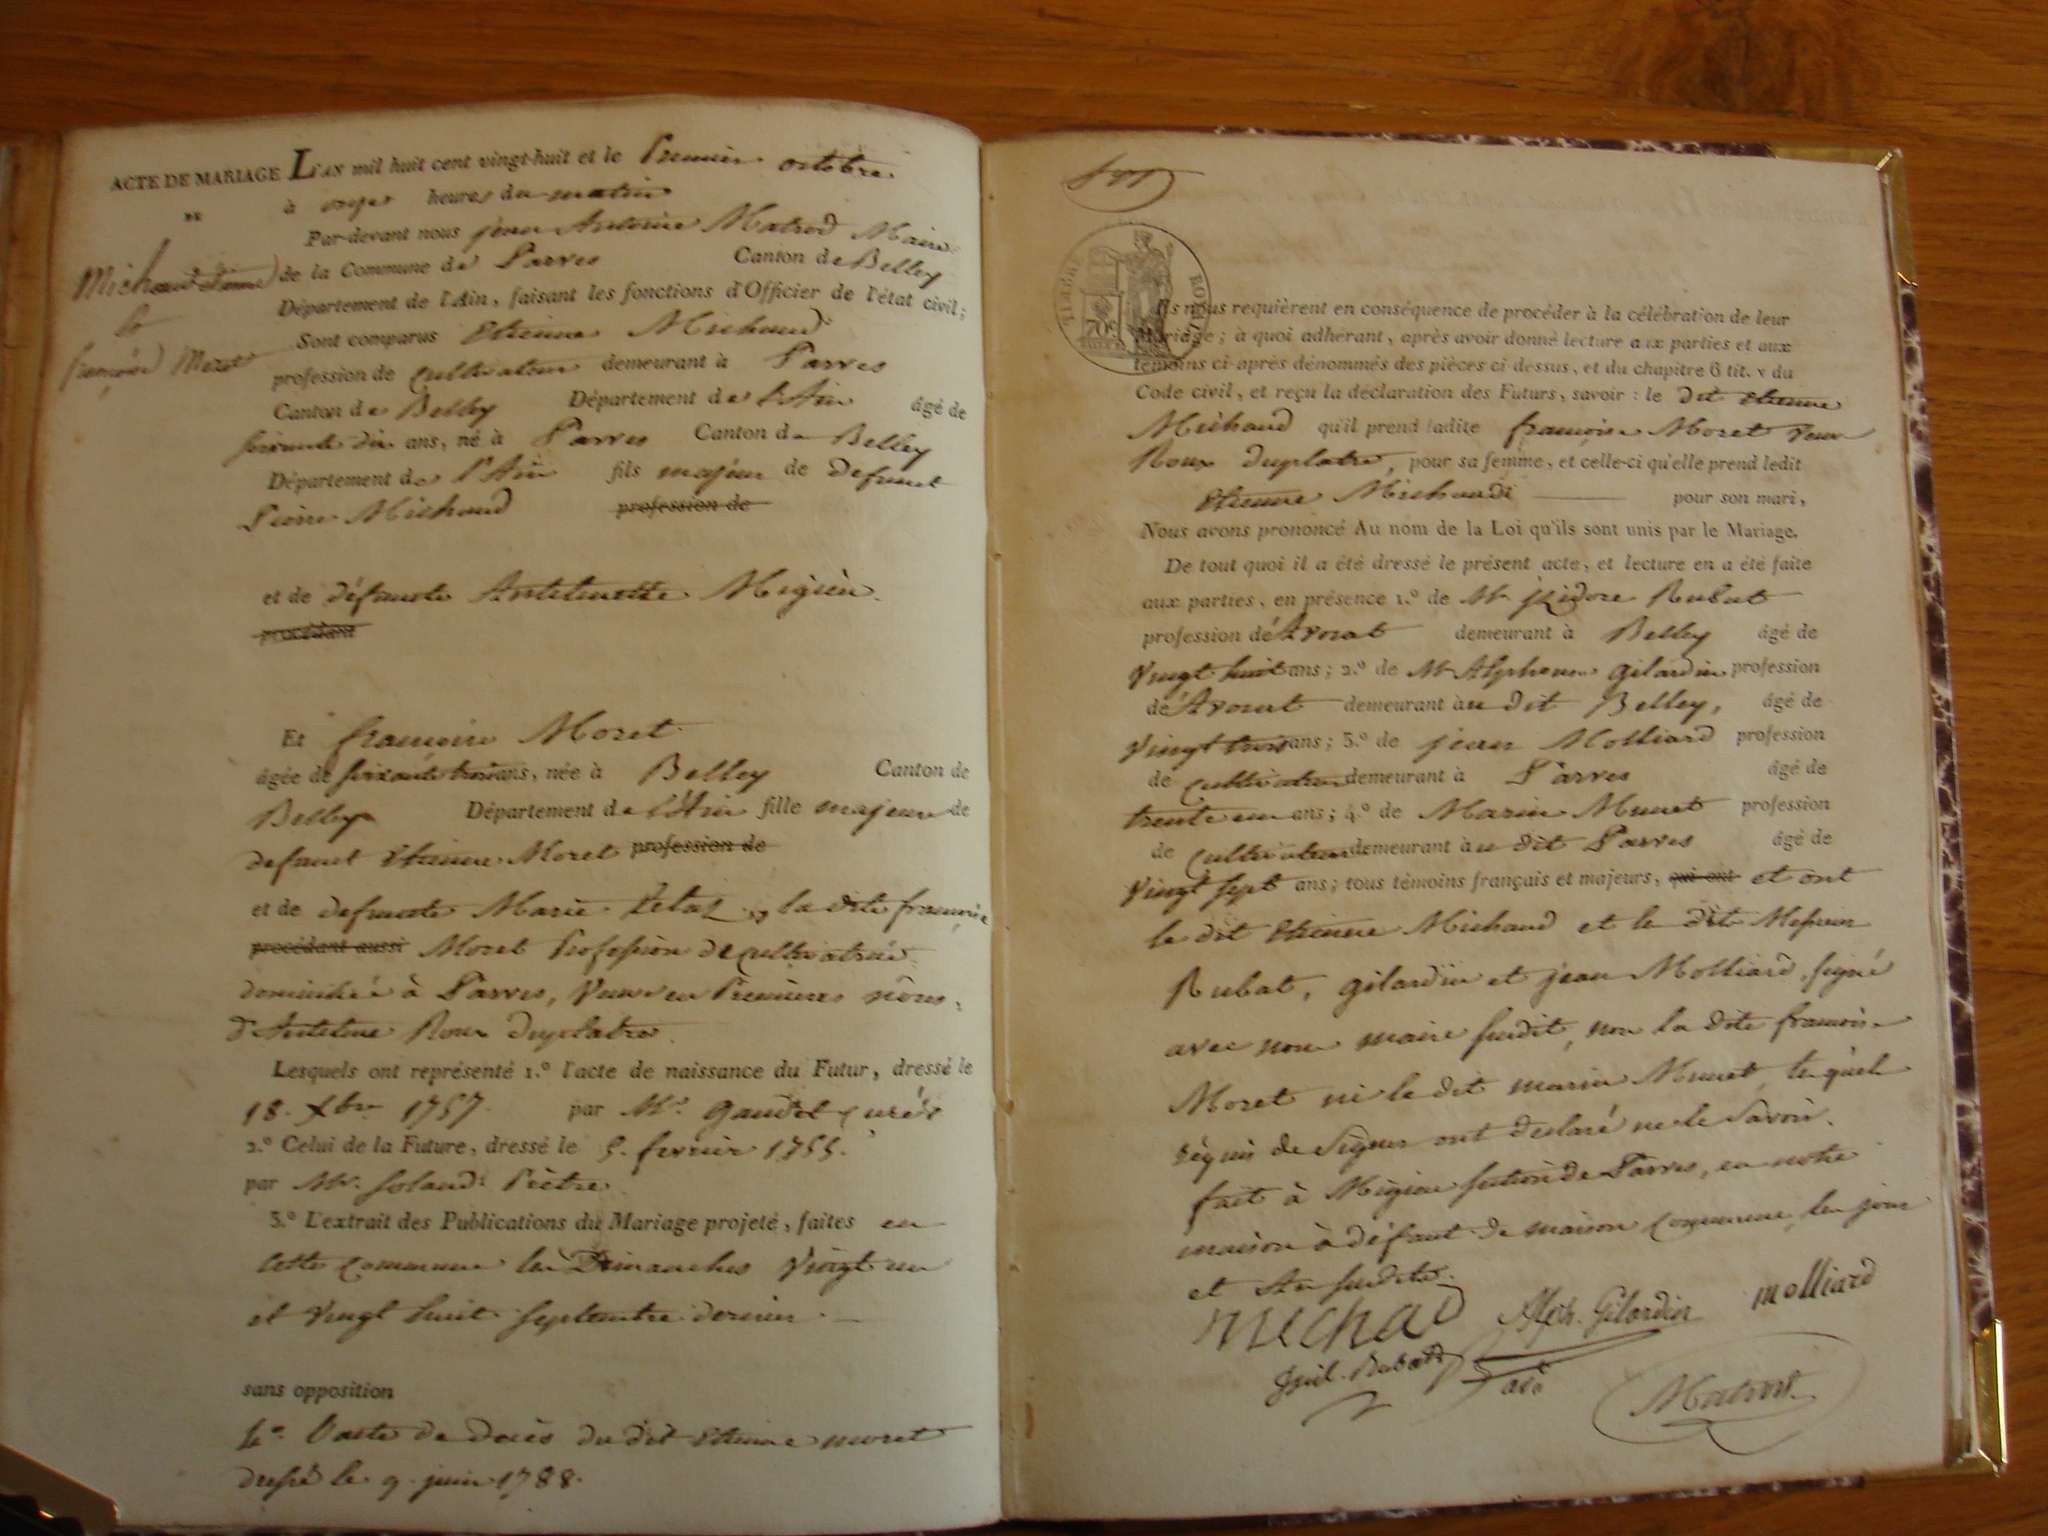 ACTE DE MARIAGE L'AN mil huit cent vingt-huit et le Premier octobre
DE
à onze heures du matin
Par-devant nous jean Antoine Matrod Maire
Michaud etienne
et
françoise Moret
de la Commune de Parves Canton de Belley
Département de l'Ain, faisant les fonctions d'Officier de l'état civil;
Sont comparus Etienne Michaud
profession de cultivateur demeurant à Parves
Canton de Belley Département de l'Ain âgé de
soixante dix ans, né à Parves Canton de Belley
Département de l'Ain fils majeur de defunct
Pierre Michaud profession de
et de défuncte Antelmette Migieu
procédant
Et françoise Moret
âgée de soixante trois ans, née à Belley Canton de
Belley Département de l'Ain fille majeure de
defunct Etienne Moret profession de
et de defuncte Marie la dite françoise
procédant aussi Moret Profession de cultivatrice
domiciliée à Parves, Veuve en Premières nôces,
d'Antelme Roux Duplatre.
Lesquels ont représenté 1.° l'acte de naissance du Futur, dressé le
18. Xbre 1757. par Mr. Gaudet curé
2.° Celui de la Future, dressé le 5. fevrier 1755.
par Mr. Prêtre.
3.° L'extrait des Publications du Mariage projeté, faites en
cette commune les Dimanches Vingt un
et Vingt huit septembre dernier.
sans opposition
4.° L'acte de décès du dit Etienne moret
dressé le 9. juin 1788.
TIMBRE ROYAL
70c
Ils nous requièrent en conséquence de procéder à la célébration de leur
Mariage; à quoi adhérant, après avoir donné lecture aux parties et aux
témoins ci-après dénommés des pièces ci-dessus, et du chapitre 6 tit. v du
Code civil, et reçu la déclaration des Futurs, savoir: le dit etienne
Michaud qu'il prend ladite françoise Moret veuve
Roux duplatre, pour sa femme, et celle-ci qu'elle prend ledit
Etienne Michaud pour son mari,
Nous avons prononcé Au nom de la Loi qu'ils sont unis par le Mariage.
De tout quoi il a été dressé le présent acte, et lecture en a été faite
aux parties, en présence 1.° de Mr jzidore Rubat
profession d'Avocat demeurant à Belley âgé de
Vingt huit ans; 2.° de Mr Alphonse gilardin profession
d'Avocat demeurant au dit Belley, âgé de
Vingt trois ans; 3.° de jean Molliard profession
de cultivateur demeurant à Parves âgé de
trente un ans; 4.° de Marin Munet profession
de cultivateur demeurant au dit Parves âgé de
Vingt sept ans; tous témoins français et majeurs, qui ont et ont
le dit Etienne Michaud et le dits Messieurs
Rubat, gilardin et jean Molliard, signé
avec nous maire susdit, non la dite françoise
Moret ni le dit marin Munet, lesquels
réquis de signer ont declaré ne le savoir.
fait à Migieu section de Parves, en notre
maison à défaut de maison commune, les jour
et an susdits.
Michaud Alph. Gilardin molliard
Rubat
Matrod